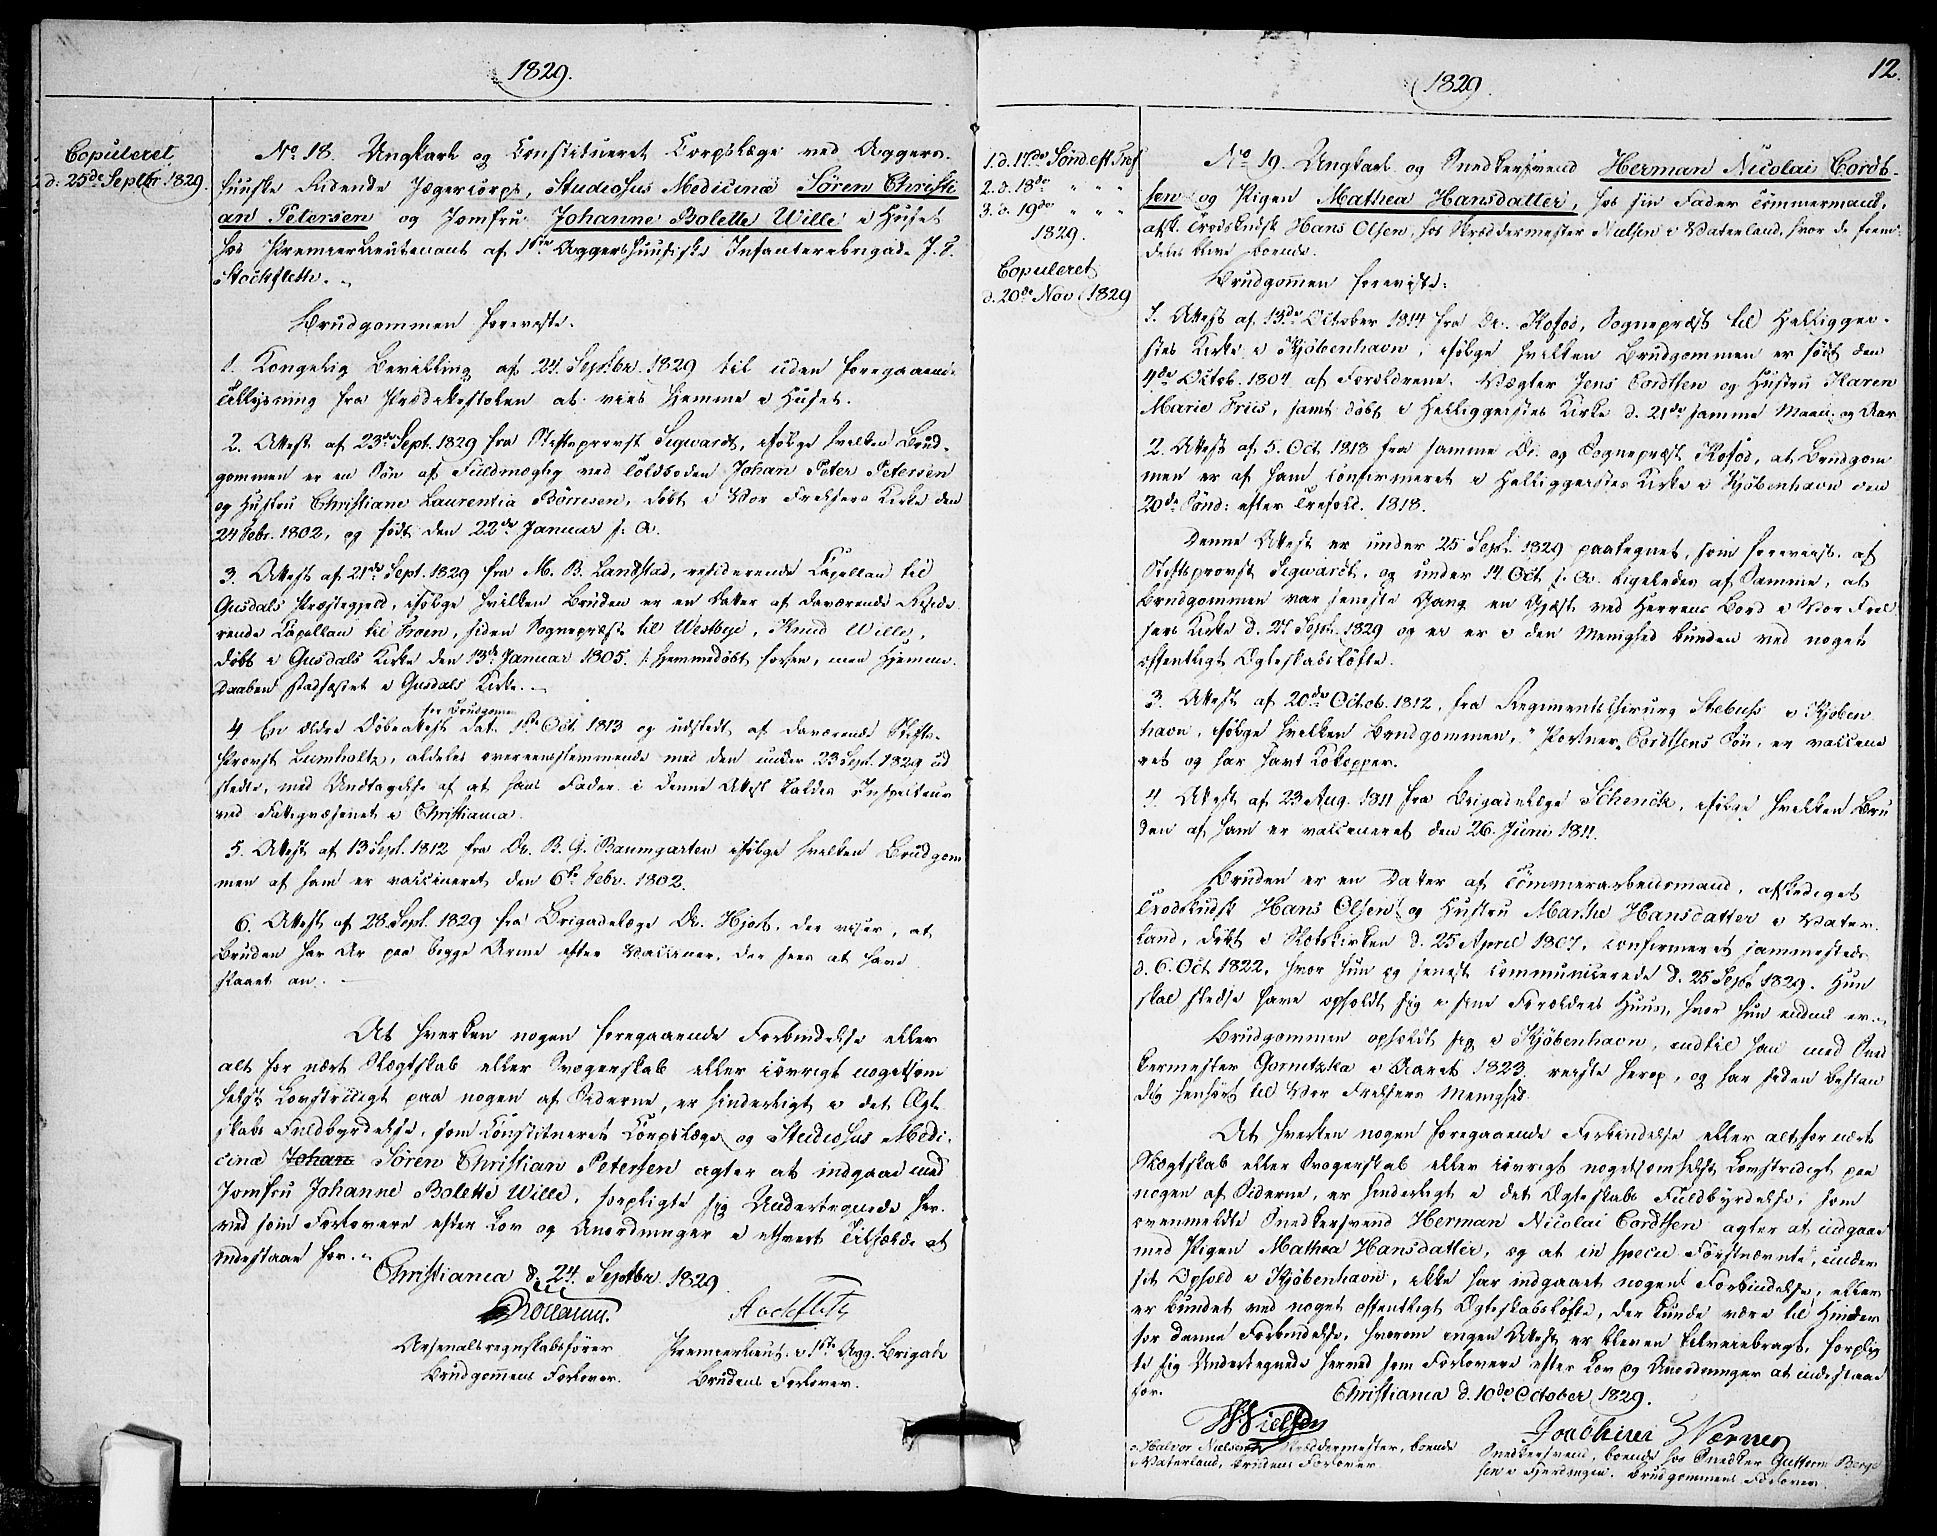 1829.
Copuleret
d. 25de Septbr 1829.
No 18. Ungkarl og Constitueret Corpslæge ved Aggers-
huuske Ridende Jægercorps, Studiosus Medicinæ Søren Christi
an Petersen og Jomfru Johanne Bolette Wille i Huset
hos Premierlieutenant af 1ste Aggershuusiske Infanteriebrigade
Stockflethe.
Brudgommen foreviste.
1. Kongelig Bevilling af 24. Septbr. 1829 til uden foregaaende
Tillysning fra Prædikestolen at vies hjemme i Huset.
2. Attest af 23de Sept. 1829 fra Stiftsprovst Segwardt, ifølge hvilken Brud-
gommen er en Søn af Fuldmægtig ved Toldboden Johan Peter Petersen
og Hustru Christiane Laurentia Børresen, døbt i Vor Frelsers Kirke den
24 Febr. 1802, og født den 22de Januar s. A.
3. Attest af 21de Sept. 1829 fra M. B. Landstad, residerende Capellan til
Gusdals Præstegjeld, ifølge hvilken Bruden er en Datter af daværende Reside
rende Capellan til Froen, siden Sognepræst til Westbye, Knud Wille,
døbt i Gusdals Kirke den 13de Januar 1805. hjemmedøbt forhen, men Hjemme
Daaben stadfæstet i Gusdals Kirke.
4 En ældre Døbeattest for Brudgommen dat. 1ste Oct 1813 og udstedt af daværende Stifts-
Provst Lumholtz, aldeles overeensstemmende med den under 23 Sept. 1829 ud
stedte, med Undtagelse af at hans Fader i denne Attest kaldes Inspecteur
ved Fattigvæsenet i Christiania.
5. Attest af 13 Sept. 1812 fra Dr. B. G. Baumgarten ifølge hvilken Brudgom
men af ham er vaccineret den 6te Febr. 1802.
6. Attest af 28. Sept. 1829 fra Brigadelæge Dr. Hjort, der viser, at
Bruden har Ar paa begge Arme efter Vacciner, der sees at have
slaaet an.
At hverken nogen foregaaende Forbindelse eller
alt for nært Slægtskab eller Svogerskab eller iøvrigt nogetsom
helst Lovstridigt paa nogen af Siderne, er hinderligt i det Ægte
skabs Fuldbyrdelse, som Constitueret Corpslæge og Studiosus Medi-
cinæ Johan Søren Christian Petersen agter at indgaae med
Jomfru Johanne Bolette Wille, forpligte sig Undertegnede her-
ved som Forlovere efter Lov og Anordninger i ethvert Tilfælde at
indestaae for.
Christiania d. 24. Septbr 1829.
Stockfleth
Arsenalsregnskabsfører Premierlieut. i 1ste Agg. Brigade
Brudgommens Forlover. Brudens Forlover.
12.
1829.
1. d. 17de Sønd eft Tref
2. d. 18de " " "
3. d. 19de " " "
1829.
Copuleret
d. 20de Nov 1829
No 19. Ungkarl og Snedkersvend Herman Nicolai Cordt-
sen og Pigen Mathea Hansdatter, hos sin Fader Tømmermand,
afsk. Trodskudsk Hans Olsen, hos Skræddermester Nielsen i Vaterland, hvor de frem-
deles blive boende.
Brudgommen foreviste:
1. Attest af 13de October 1814 fra Dr. Kofod, Sognepræst til Helliggei-
stes Kirke i Kjøbenhavn, ifølge hvilken Brudgommen er født den
4de Octob. 1804 af Forældrene Vægter Jens Cordtsen og Hustru Karen
Marie Friis, samt døbt i Helliggeistes Kirke d. 21de samme Maan. og Aar
2. Attest af 5. Oct 1818 fra samme Dr. og Sognepræst Kofod, at Brudgom
men er af ham confirmeret i Helliggeistes Kirke i Kjøbenhavn den
20de Sønd: efter Trefold. 1818.
Denne Attest er under 25 Sept. 1829 paategnet, som foreviist af
Stiftsprovst Segwardt, og under 14. Oct s. A. ligeledes af Samme, at
Brudgommen var seneste Gang en Gjæst ved Herrens Bord i Vor Frel
sers Kirke d. 27 Septb. 1829 og er ei i den Menighed bunden ved noget
offentligt Ægteskabsløfte.
3. Attest af 20de Octob. 1812, fra Regimentschirurg Stebuss i Kjøben
havn, ifølge hvilken Brudgommen, "Portner Cordtsens Søn, er vaccine
ret og har havt Kokopper.
4. Attest af 23 Aug. 1811 fra Brigadelæge Schenck, ifølge hvilken Bru
den af ham er vaccineret den 26. Juni 1811.
Bruden er en Datter af Tømmerarbeidsmand, afskediget
Trodskudsk Hans Olsen og Hustru Marthe Hansdatter i Vater-
land, døbt i Slotskirken d. 25 April 1807, confirmeret sammesteds
d. 6. Oct 1822, hvor hun og senest communicerede d. 25 Septb 1829. Hun
skal stedse have opholdt sig i sine Forældres Huus, hvor hun endnu er.
Brudgommen opholdt sig i Kjøbenhavn, indtil han med Sned
kermester Gornitzka i Aaret 1823 reiste herop, og har siden bestan
dig henhørt til Vor Frelsers Menighed.
At hverken nogen foregaaende Forbindelse eller altfor nært
Slægtskab eller Svogerskab eller iøvrigt nogetsomhelst Lovstridigt paa
nogen af Siderne, er hinderligt i det Ægteskabs Fuldbyrdelse, som
ovenmeldte Snedkersvend Herman Nicolai Cordtsen agter at indgaae
med Pigen Mathea Hansdatter, og at in specie Førstnævnte, under
sit Ophold i Kjøbenhavn, ikke har indgaaet nogen Forbindelse, eller
er bundet ved noget offentligt Ægteskabsløfte, der kunde være til Hinder
for denne Forbindelse, hvorom ingen Attest er bleven tilveiebragt, forplig
te sig Undertegnede herved som Forlovere efter Lov og Anordninger at indestaae
for.
Christiania d. 10de October 1829.
HNielsen Joachim Werner
Halvor Nielsen Skræddermester, boende Snedkersvend, boende hos Snedker Guttorm Berge
i Vaterland, Brudens Forlover. sen i Fjerdingen. Brudgommens Forlover.